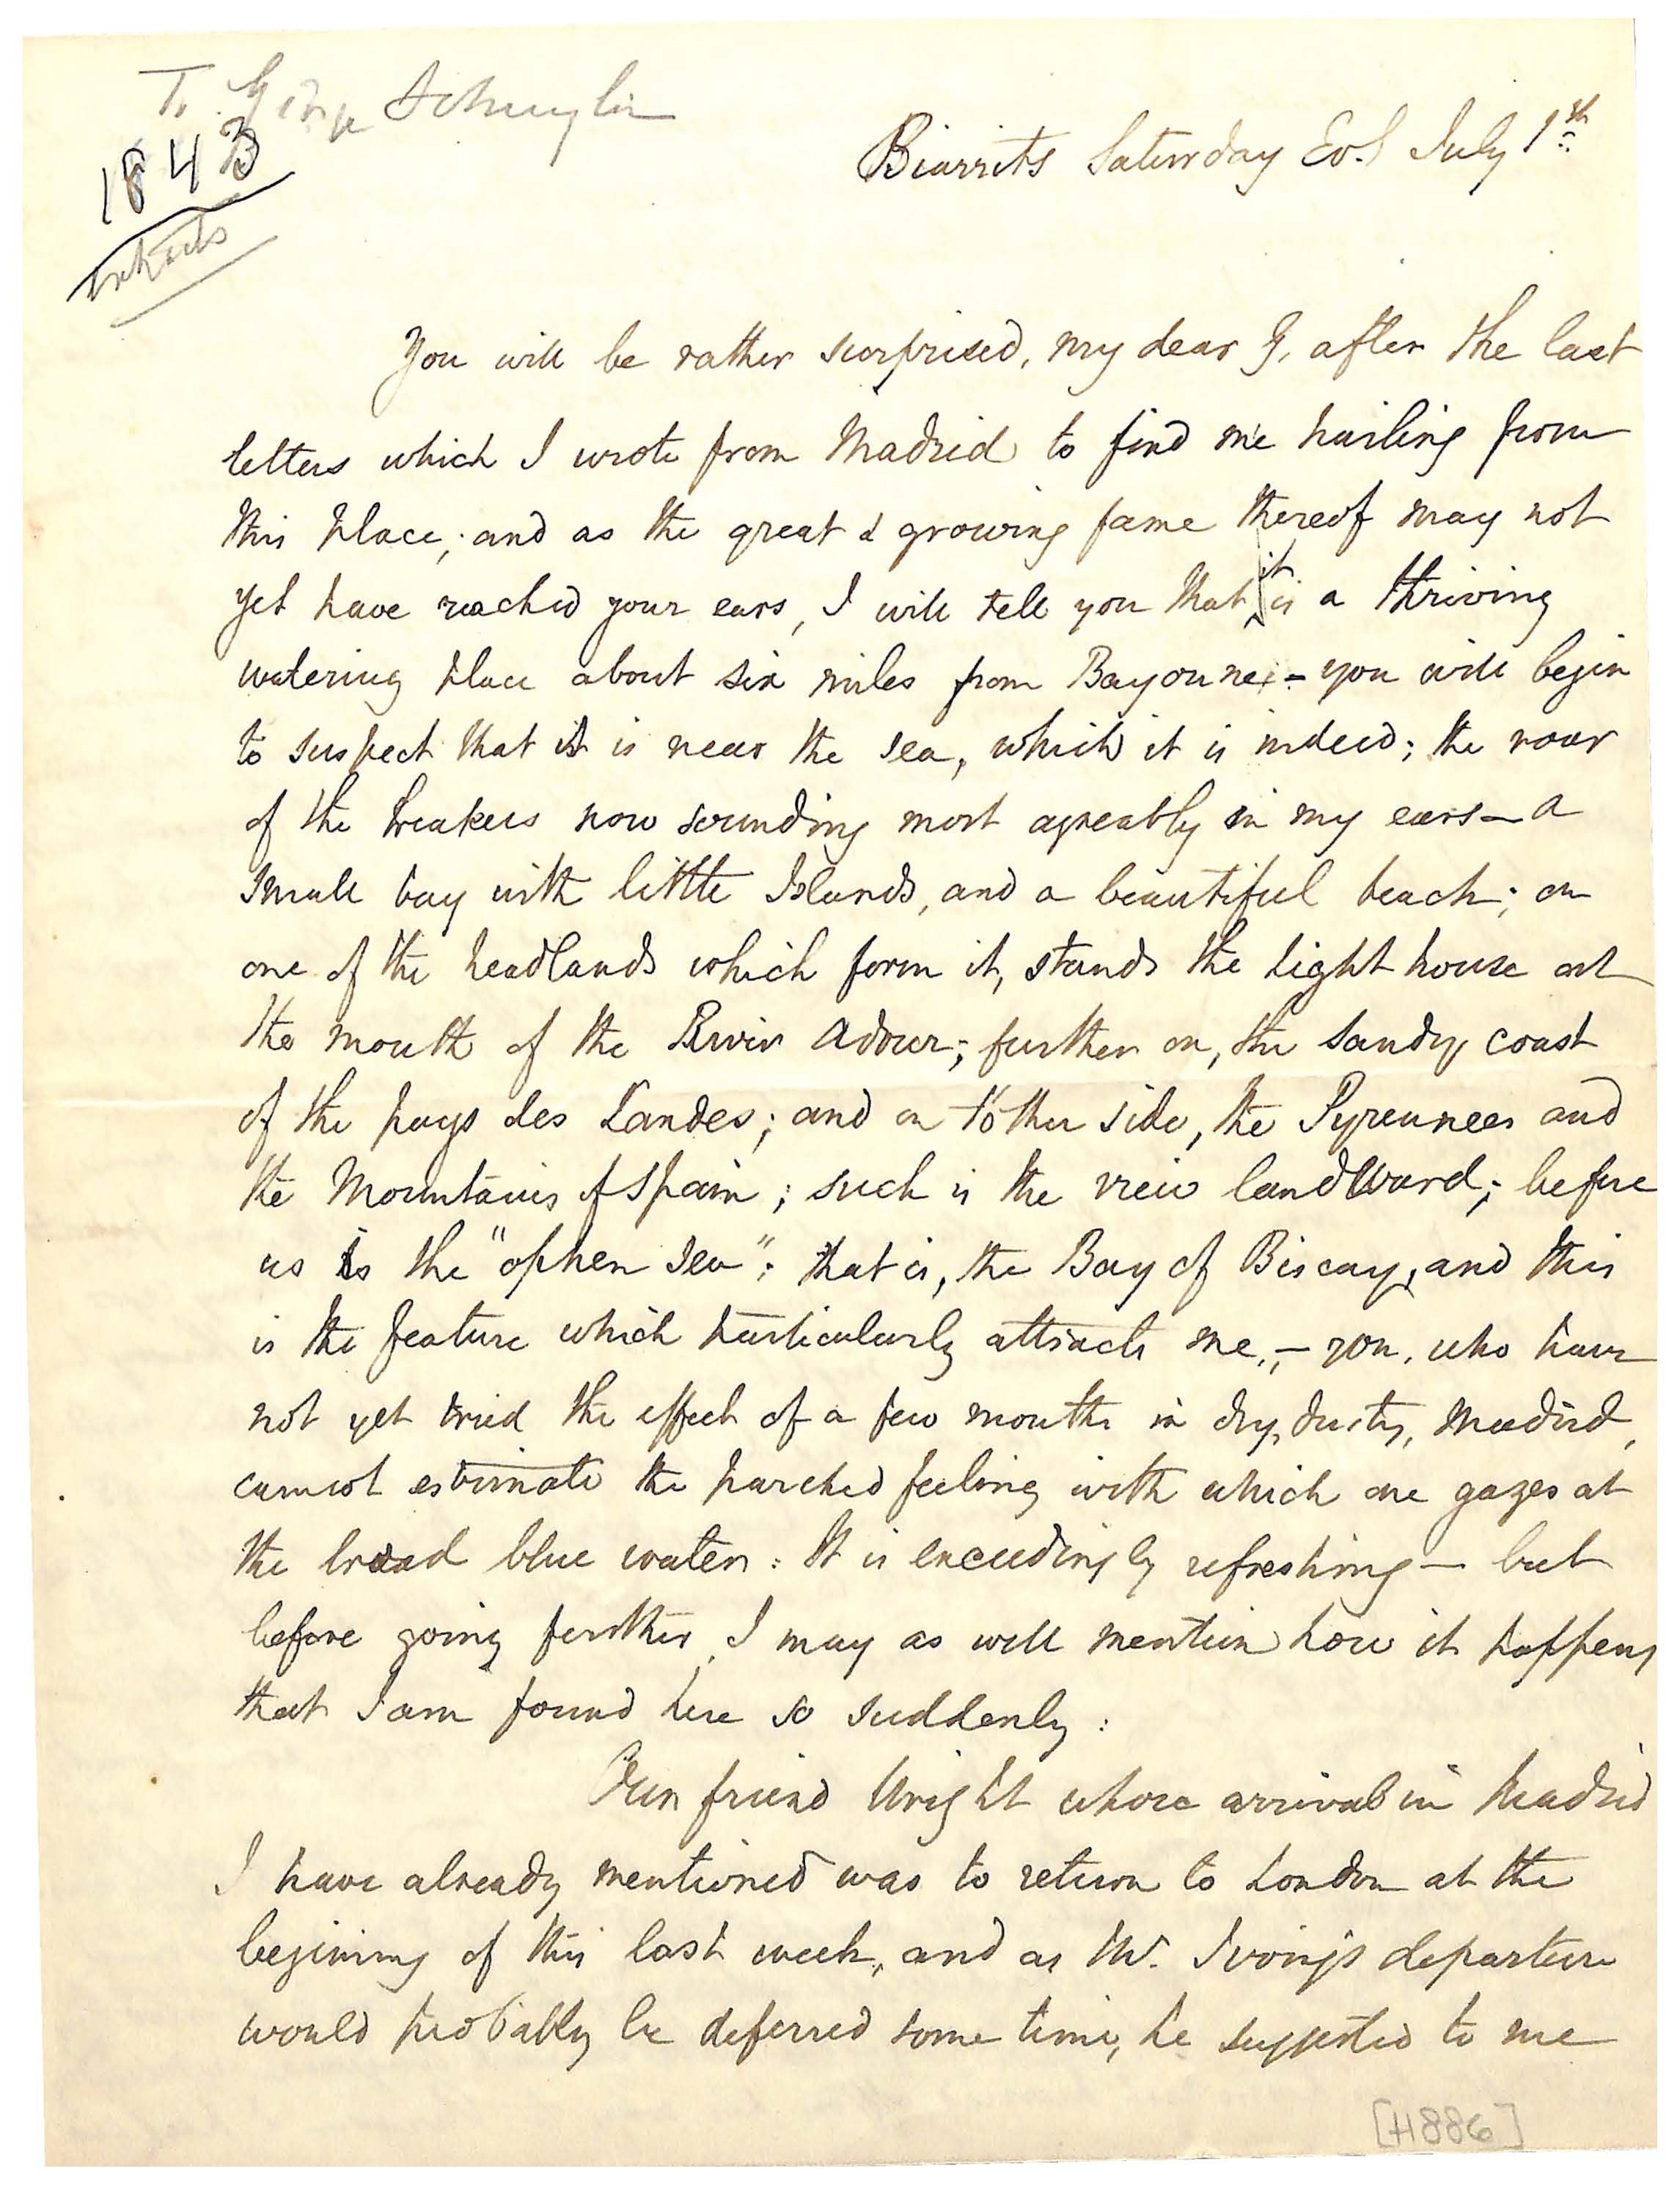 To George Schuyler
1843
Biarrits Saturday Evg July 1st
You will be rather surprised, my dear G, after the last
letters which I wrote from Madrid to find me hailing from
this place; and as the great & growing fame thereof may not
yet have reached your ears, I will tell you that it is a thriving
watering place about six miles from Bayonne; - you will begin
to suspect that it is near the sea, which it is indeed; the roar
of the breakers now sounding most agreably in my ears — a
small bay with little Islands, and a beautiful beach; on
one of the headlands which form it, stands the light house at
the mouth of the River Adour; further on, the sandy coast
of the pays des Landes; and on t'other side, the Pyrennees and
the Mountains of Spain; such is the view landward; before
us is the "ophen sea"; that is, the Bay of Biscay, and this
is the feature which particularly attracts me, - you, who have
not yet tried the effect of a few months in dry, dusty, Madrid,
cannot estimate the parched feeling with which one gazes at
the broad blue water: It is exceedingly refreshing — but
before going further, I may as well mention how it happens
that I am found here so suddenly:
Our friend Wright whose arrival in Madrid
I have already mentioned was to return to London at the
begining of this last week, and as Mr. Irving's departure
would probably be deferred some time, he suggested to me
[H886]